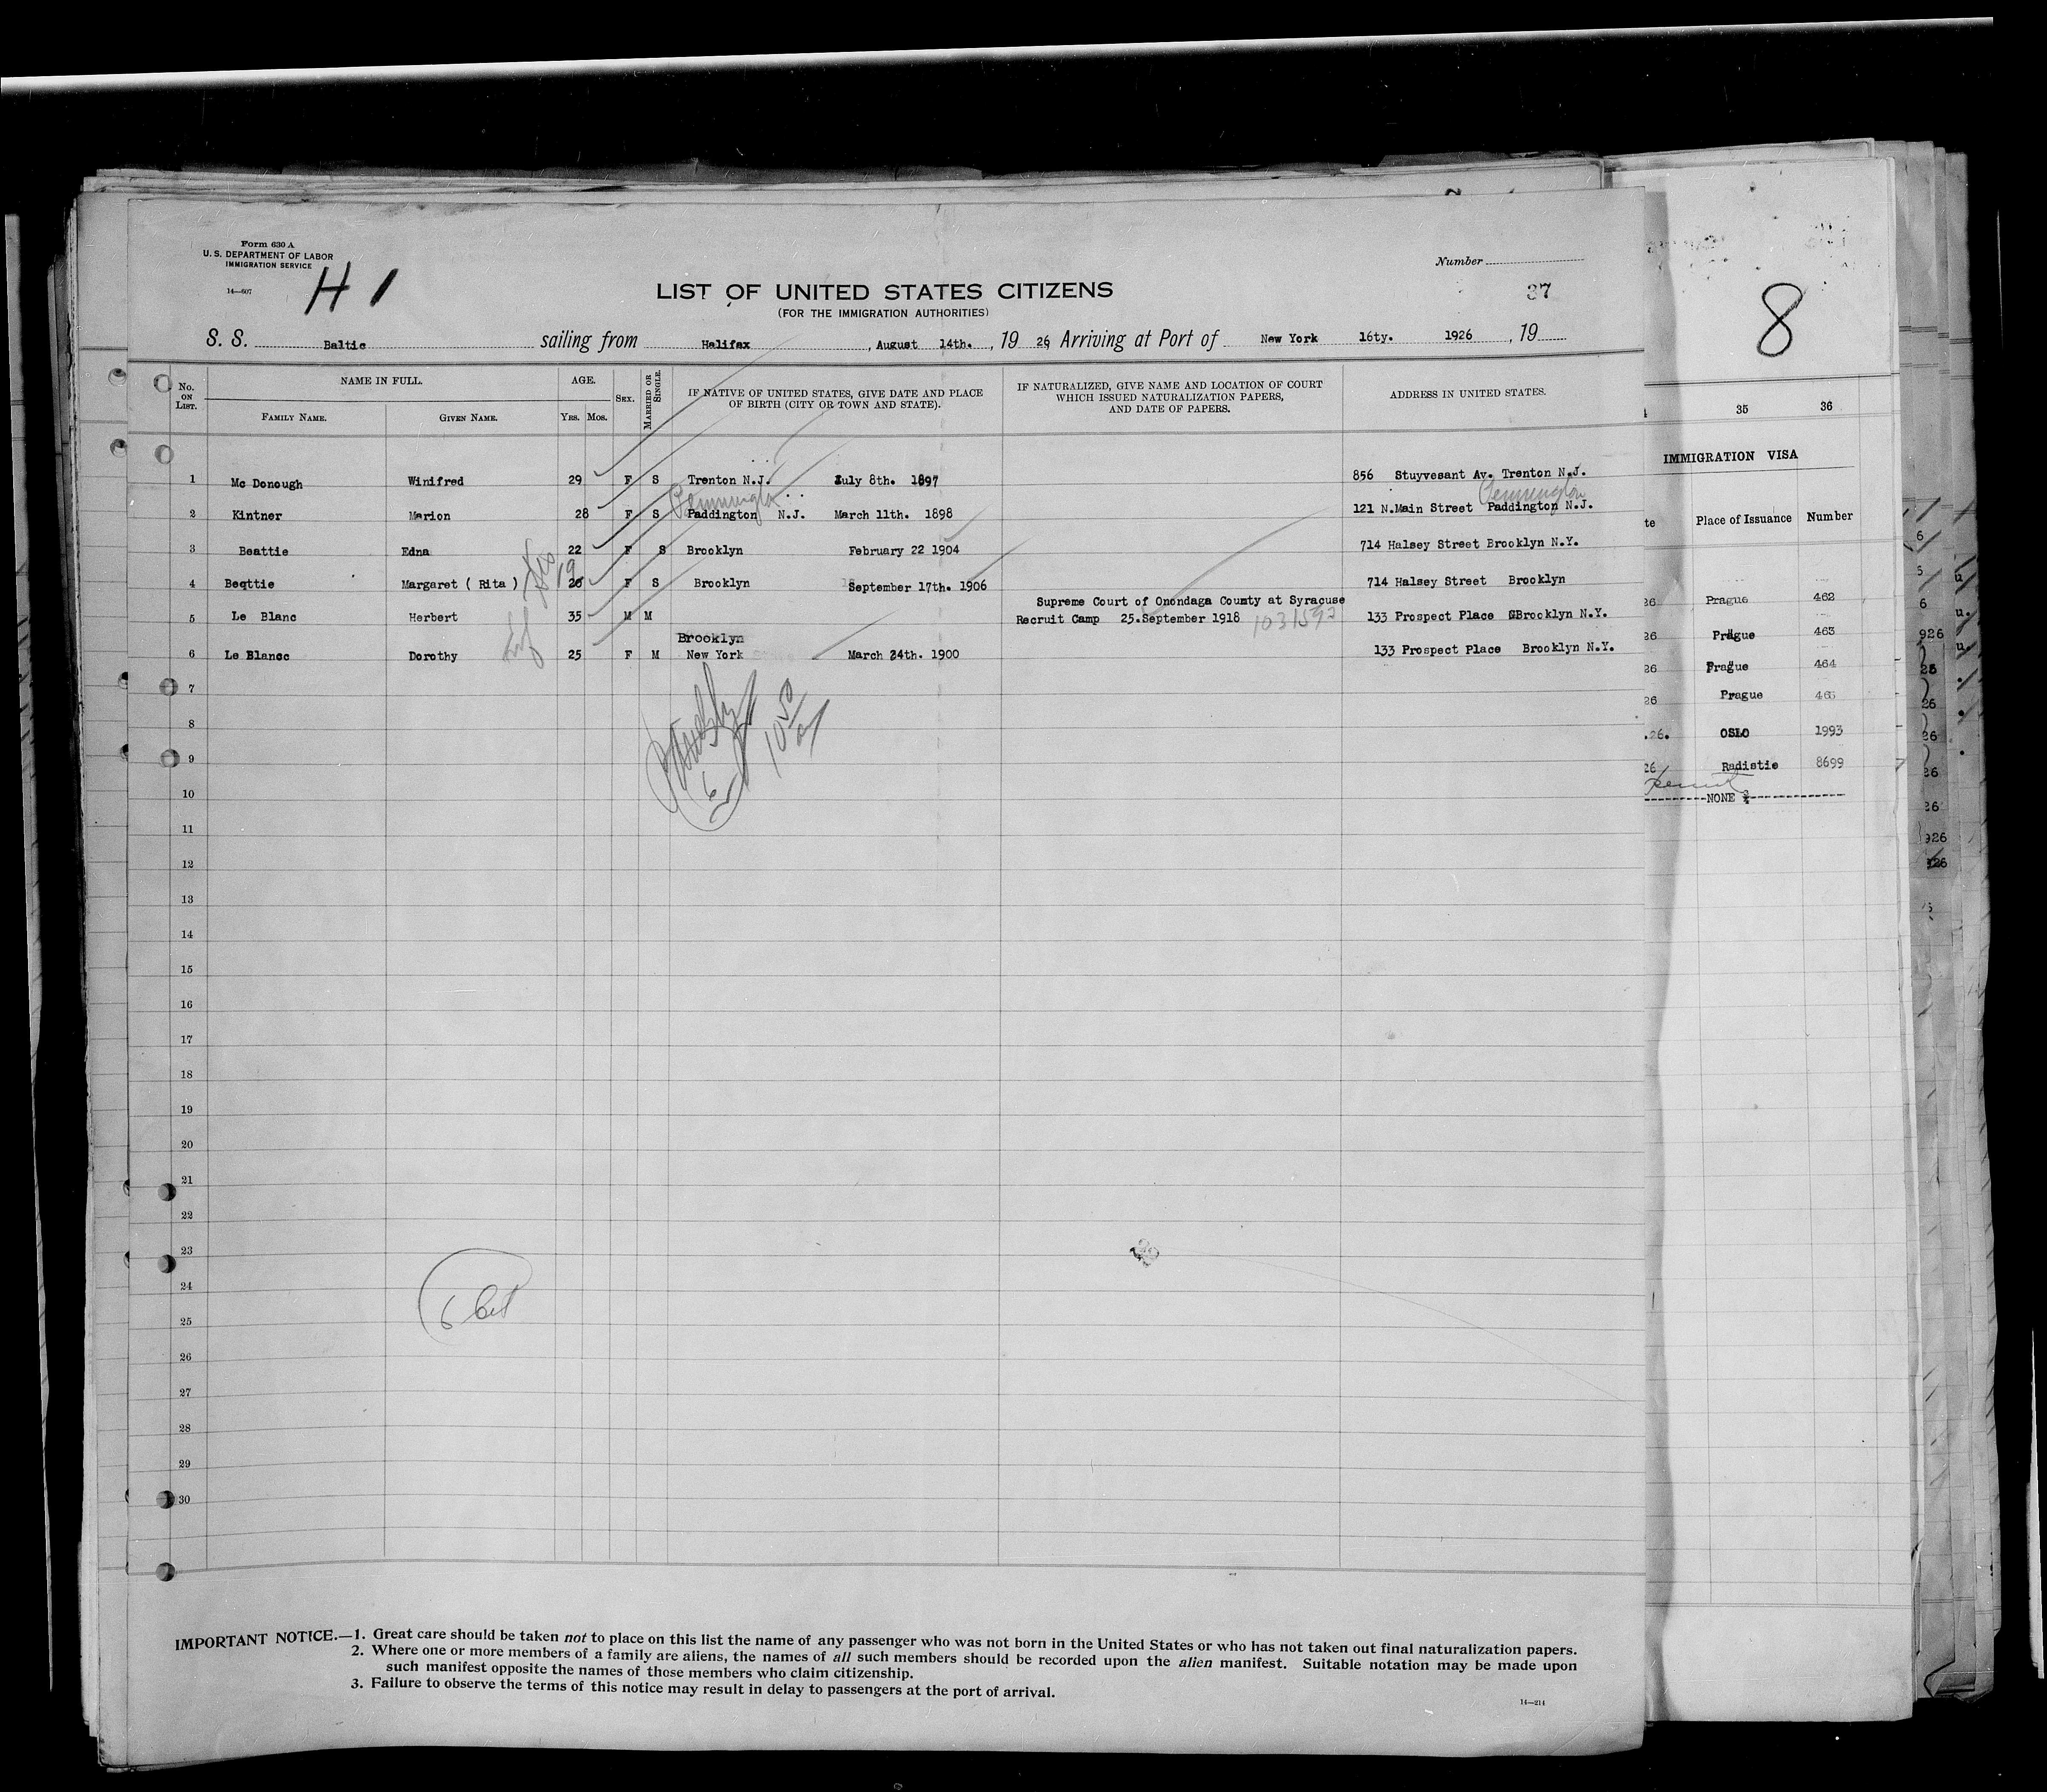 Form 630 A
U. S. DEPARTMENT OF LABOR
IMMIGRATION SERVICE
14—607
H 1
Number
LIST OF UNITED STATES CITIZENS
37
(FOR THE IMMIGRATION AUTHORITIES)
8
S. S. Baltic sailing from Halifax, August 14th., 19 26 Arriving at Port of New York 16ty. 1926, 19
No. ON LIST.
NAME IN FULL.
FAMILY NAME. GIVEN NAME.
AGE.
YRS. MOS.
SEX.
MARRIED OR SINGLE.
IF NATIVE OF UNITED STATES, GIVE DATE AND PLACE
OF BIRTH (CITY OR TOWN AND STATE).
IF NATURALIZED, GIVE NAME AND LOCATION OF COURT
WHICH ISSUED NATURALIZATION PAPERS,
AND DATE OF PAPERS.
ADDRESS IN UNITED STATES.
1 Mc Donough Winifred 29 F S Trenton N.J. July 8th. 1897 856 Stuyvesant Av. Trenton N.J.
Pennington Pennington
2 Kintner Marion 28 F S Paddington N.J. March 11th. 1898 121 N.Main Street Paddington N.J.
3 Beattie Edna 22 F S Brooklyn February 22 1904 714 Halsey Street Brooklyn N.Y.
19
4 Beqttie Margaret ( Rita ) 20 F S Brooklyn September 17th. 1906 714 Halsey Street Brooklyn
Supreme Court of Onondaga County at Syracuse
5 Le Blanc Herbert 35 M M Recruit Camp 25.September 1918 133 Prospect Place Brooklyn N.Y.
Brooklyn
6 Le Blancc Dorothy 25 F M New York March 24th. 1900 133 Prospect Place Brooklyn N.Y.
7
8
9
10
11
12
13
14
15
16
17
18
19
20
21
22
23
24
25
26
27
28
29
30
6
10 50
6
35 36
IMMIGRATION VISA
te Place of Issuance Number
26 Prague 462
26 Prague 463
26 Prague 464
26 Prague
.26. OSLO 1993
26 Radistie 8699
NONE
IMPORTANT NOTICE.—1. Great care should be taken not to place on this list the name of any passenger who was not born in the United States or who has not taken out final naturalization papers.
2. Where one or more members of a family are aliens, the names of all such members should be recorded upon the alien manifest. Suitable notation may be made upon
such manifest opposite the names of those members who claim citizenship.
3. Failure to observe the terms of this notice may result in delay to passengers at the port of arrival.
14—214